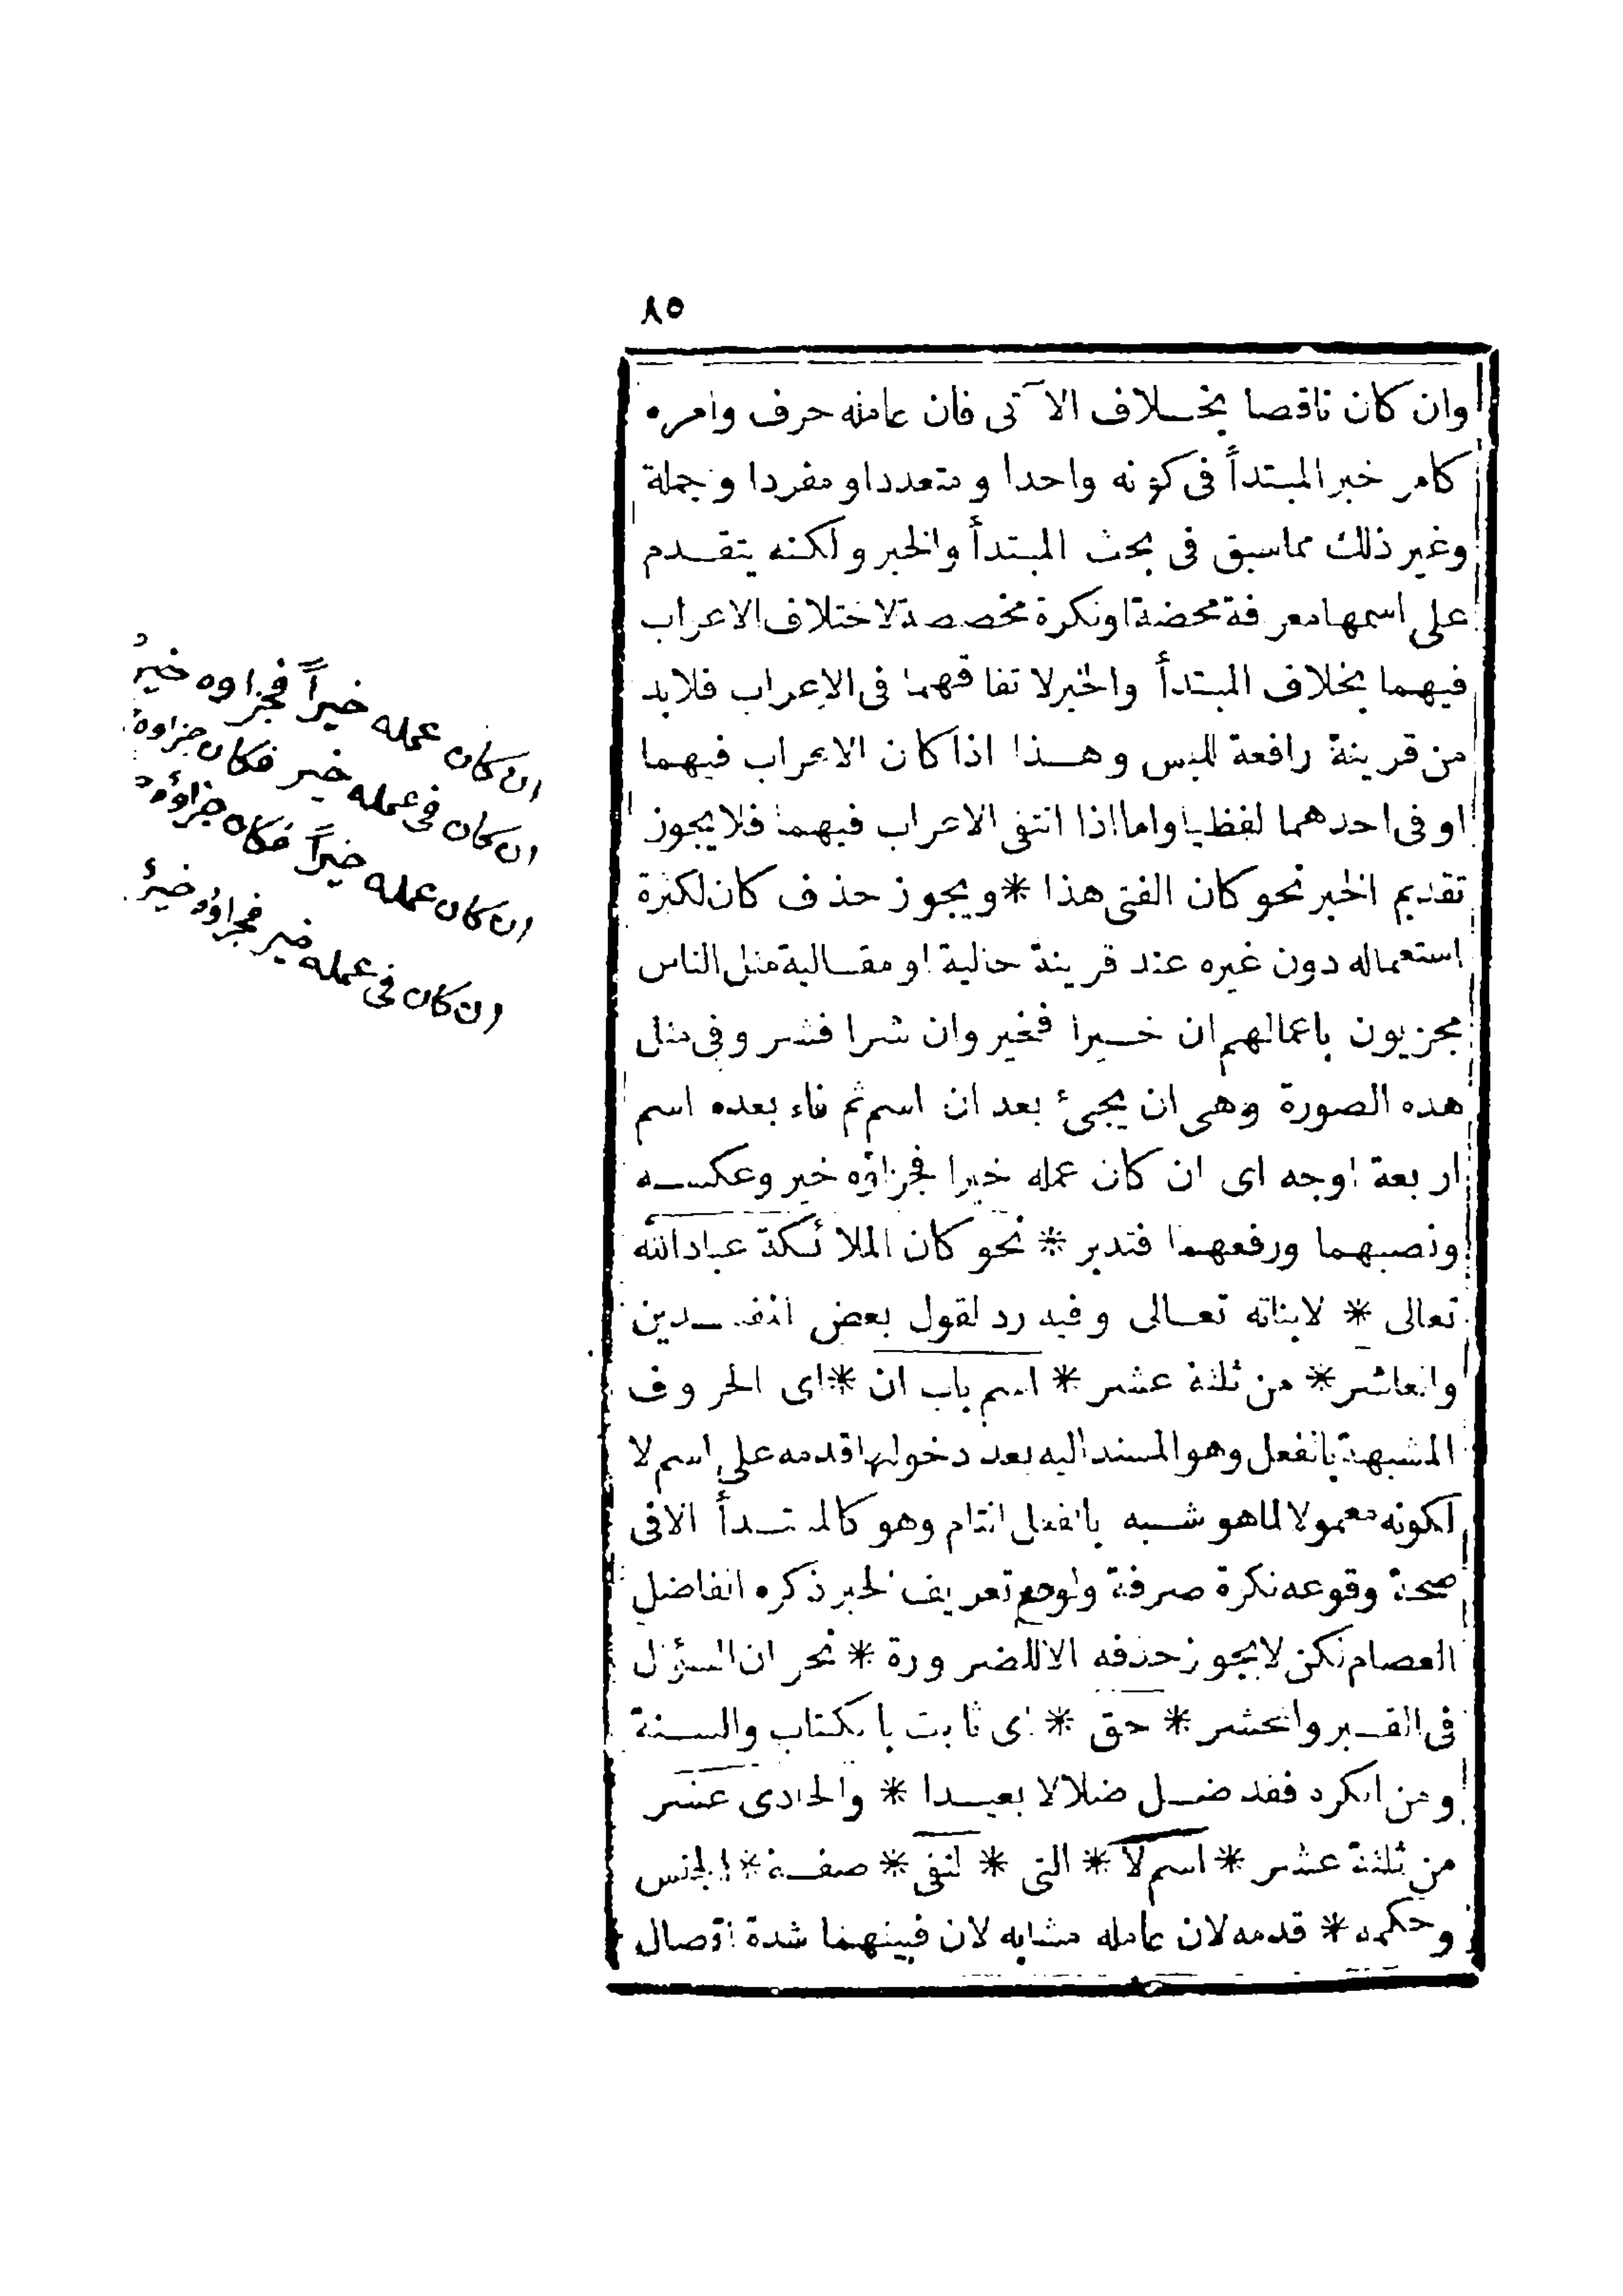 ٨٥
وان كان ناقصا بخلاف الآتى فان عامله حرف وامره
كامر خبر المبتدأ فى كونه واحدا ومتعددا ومفردا وجملة
وغير ذلك مماسبق فى بحث المبتدأ والخبر ولكنه يتقدم
على اسمها معرفة محضة اونكرة مخصصة لاختلاف الاعراب
فيهما بخلاف المبتدأ والخبر لاتفاقهما فى الاعراب فلابد
من قرينة رافعة للبس وهذا اذا كان الاعراب فيهما
اوفى احدهما لفظيا واما اذا انتفى الاعراب فيهما فلايجوز
تقديم الخبر نحو كان الفتى هذا * ويجوز حذف كان لكثرة
استعماله دون غيره عند قرينة حالية او مقالية مثل الناس
مجزيون باعمالهم ان خيرا فخير وان شرا فشر وفى مثل
هذه الصورة وهى ان يجىء بعد ان اسم ثم فاء بعده اسم
اربعة اوجه اى ان كان عمله خيرا فجزاؤه خير وعكسه
ونصبهما ورفعهما فتدبر * نحو كان الملائكة عباد الله
تعالى * لابناته تعالى وفيه رد لقول بعض
والعاشر * من ثلثة عشر * اسم باب ان * اى الحروف
المشبهة بالفعل وهو المسند اليه بعد دخولها قدمه على اسم لا
لكونه معمولا لما هو شبه بالفعل التام وهو كالمبتدأ الافى
صحة وقوعه نكرة صرفة ولومع تعريف الخبر ذكره الفاضل
العصام لكن لايجوز حذفه الاللضرورة * نحو ان السؤال
فى القبر والحشر * حق * اى ثابت بالكتاب والسنة
ومن انكره فقد ضل ضلالا بعيدا * والحادى عشر
من ثلثة عشر * اسم لا * التى * لنفى * صفة * الجنس
وحكمه * قدمه لان عامله مشابه لان فبينهما شدة اتصال
ان كان عمله خيراً فجزاوه خيرٌ
ان كان فى عمله خير فكان جزاوهٗ
ان كان عمله خيراً فكان جزاؤه
ان كان فى عمله خير فجزاؤه خيرٌ